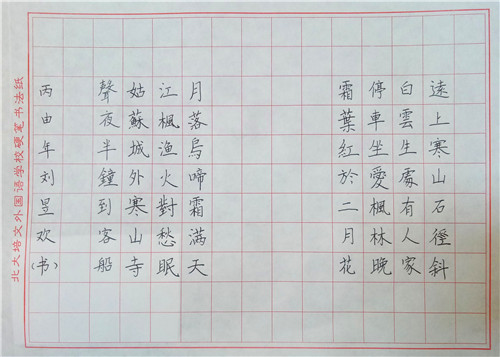 遠上寒山石徑斜
白雲生處有人家
停車坐愛楓林晚
霜葉紅於二月花
月落烏啼霜满天
江楓渔火對愁眠
姑蘇城外寒山寺
聲夜半鐘到客船
丙由年刘昱欢(书)
北大培文外国语学校硬笔书法纸